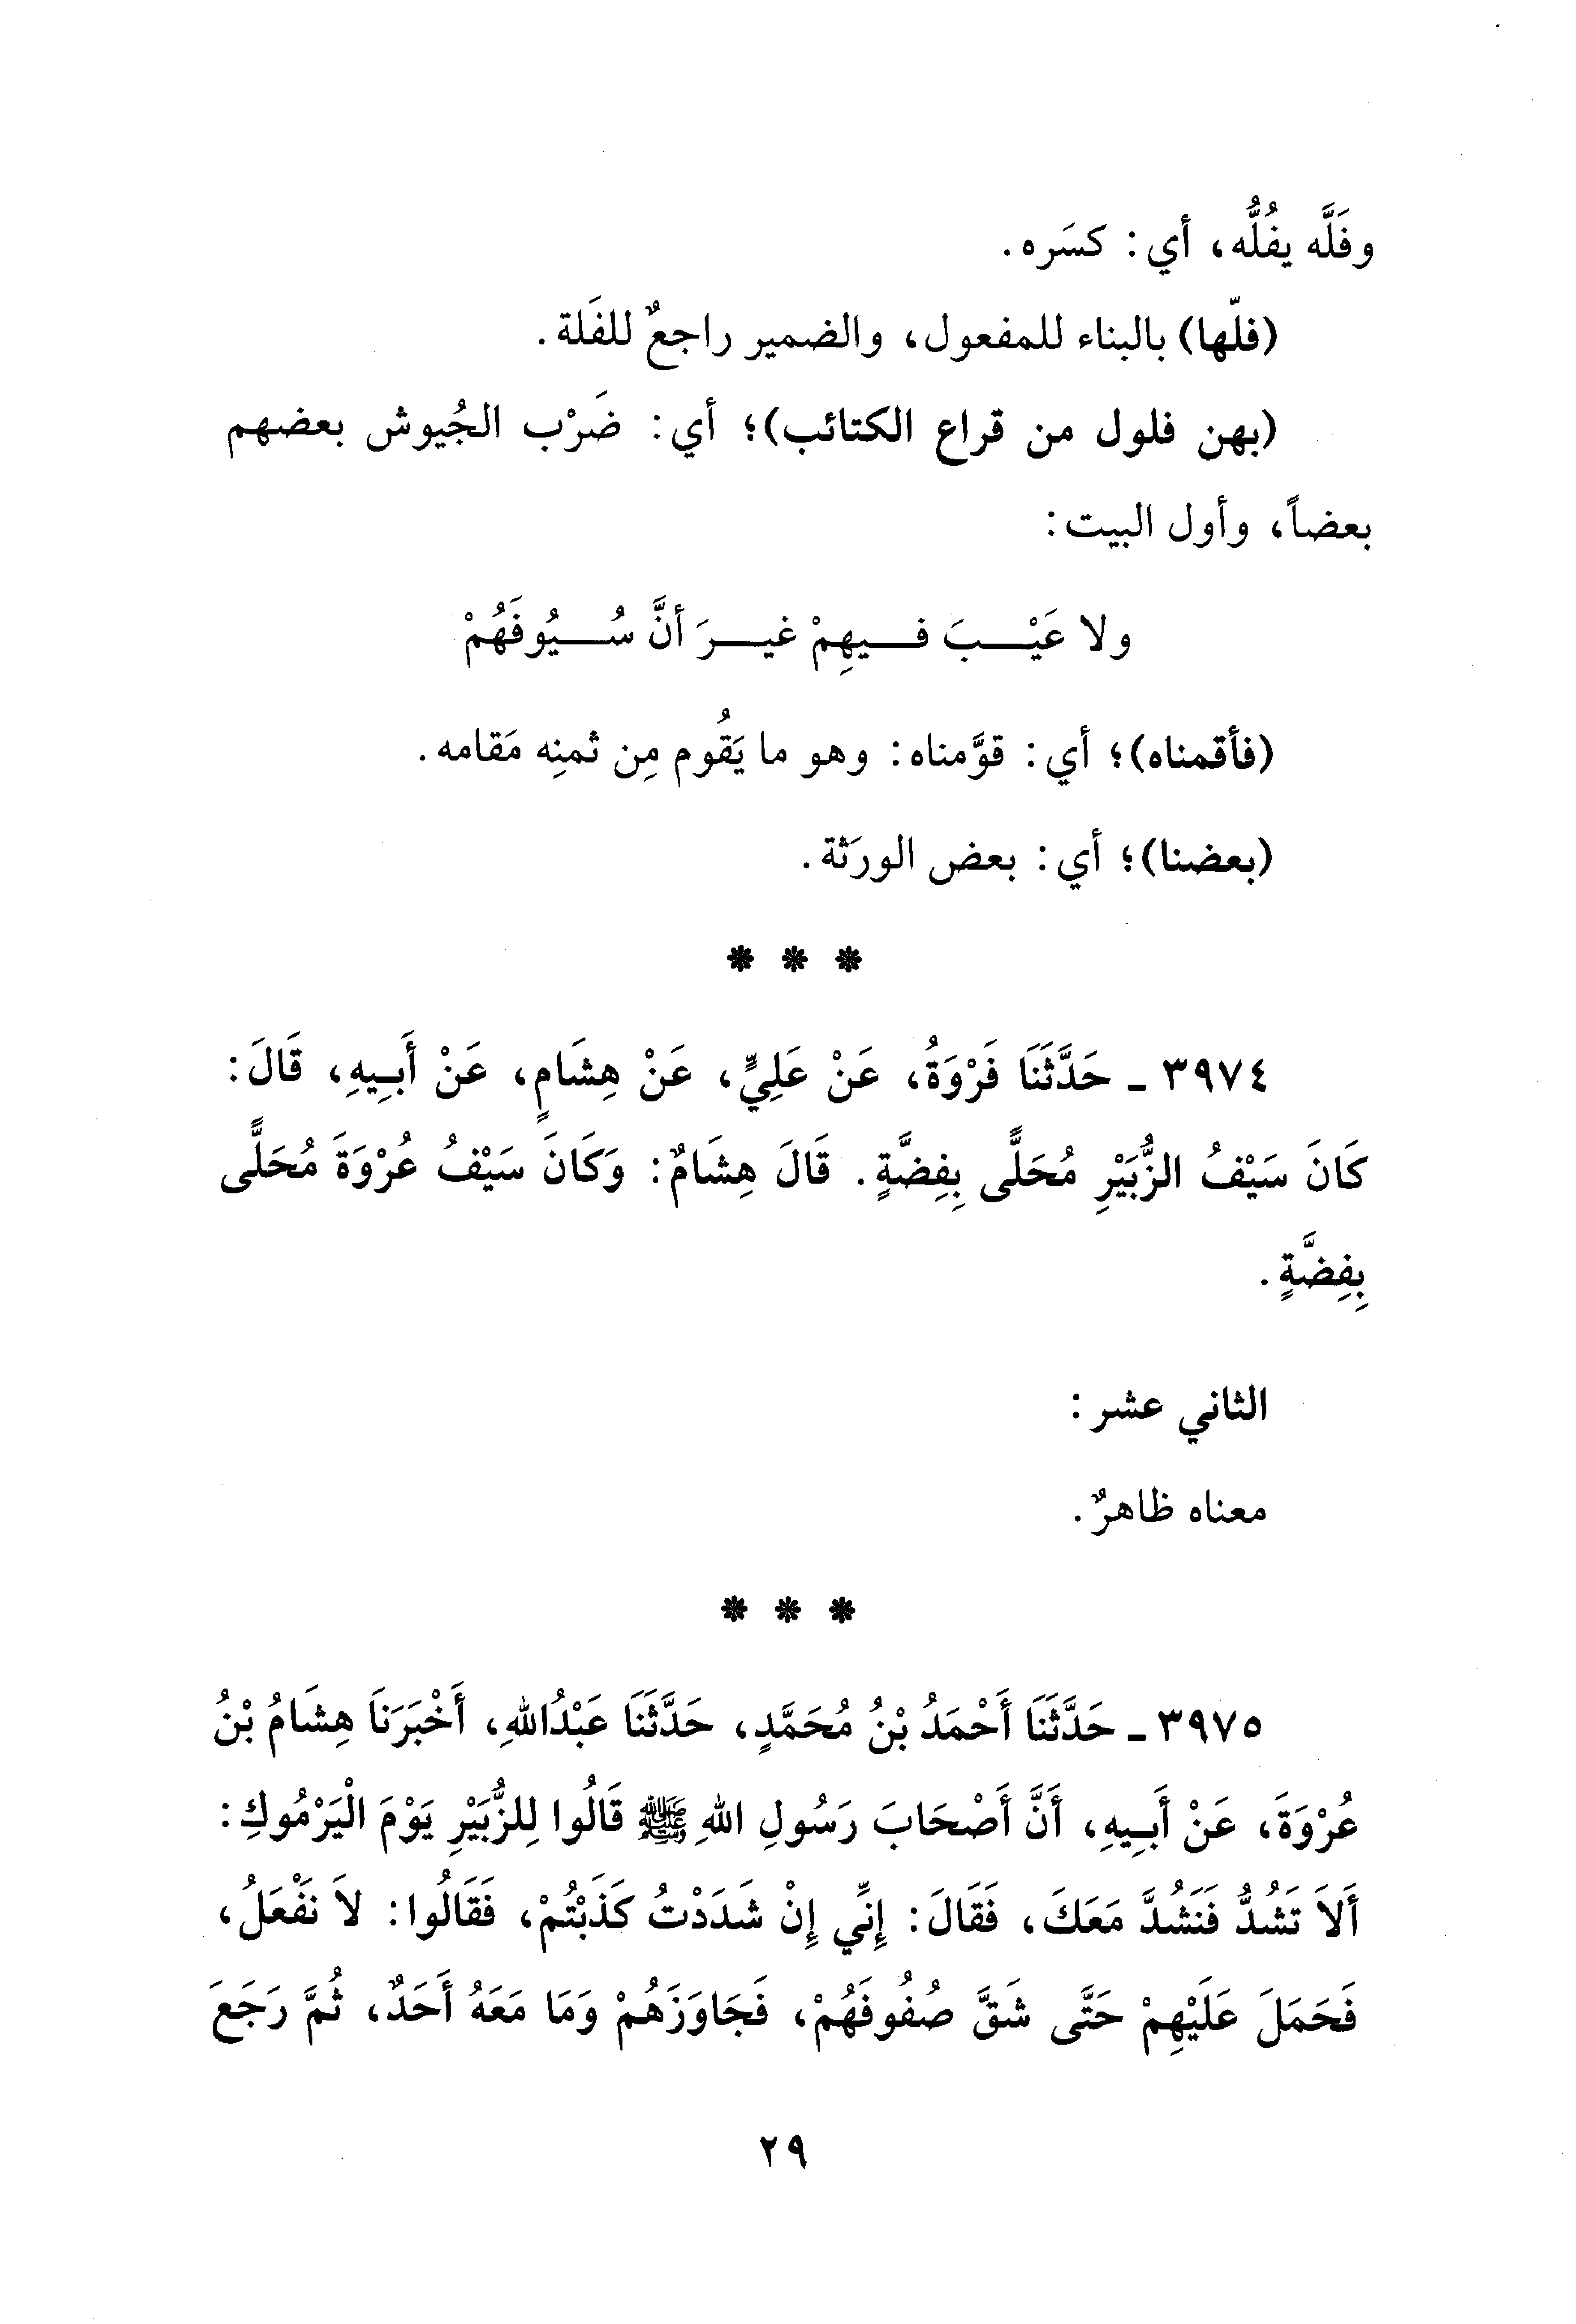 وفَلَّه يفُلُّه، أي: كسَره.
(فلّها) بالبناء للمفعول، والضمير راجعٌ للفَلة.
(بهن فلول من قراع الكتائب)؛ أي: ضَرْب الجُيوش بعضهم
بعضاً، وأول البيت:
ولا عَيْبَ فيهِمْ غيرَ أنَّ سُيُوفَهُمْ
(فأقمناه)؛ أي: قوَّمناه: وهو ما يَقُوم مِن ثمنِه مَقامه.
(بعضنا)؛ أي: بعض الورَثة.
* * *
٣٩٧٤ ـ حَدَّثَنَا فَرْوَةُ، عَنْ عَلِيٍّ، عَنْ هِشَامٍ، عَنْ أَبِيهِ، قَالَ:
كَانَ سَيْفُ الزُّبَيْرِ مُحَلًّى بِفِضَّةٍ. قَالَ هِشَامٌ: وَكَانَ سَيْفُ عُرْوَةَ مُحَلًّى
بِفِضَّةٍ.
الثاني عشر:
معناه ظاهرٌ.
* * *
٣٩٧٥ ـ حَدَّثَنَا أَحْمَدُ بْنُ مُحَمَّدٍ، حَدَّثَنَا عَبْدُاللهِ، أَخْبَرَنَا هِشَامُ بْنُ
عُرْوَةَ، عَنْ أَبِيهِ، أَنَّ أَصْحَابَ رَسُولِ اللهِ ﷺ قَالُوا لِلزُّبَيْرِ يَوْمَ الْيَرْمُوكِ:
أَلاَ تَشُدُّ فَنَشُدَّ مَعَكَ، فَقَالَ: إِنِّي إِنْ شَدَدْتُ كَذَبْتُمْ، فَقَالُوا: لاَ نَفْعَلُ،
فَحَمَلَ عَلَيْهِمْ حَتَّى شَقَّ صُفُوفَهُمْ، فَجَاوَزَهُمْ وَمَا مَعَهُ أَحَدٌ، ثُمَّ رَجَعَ
٢٩